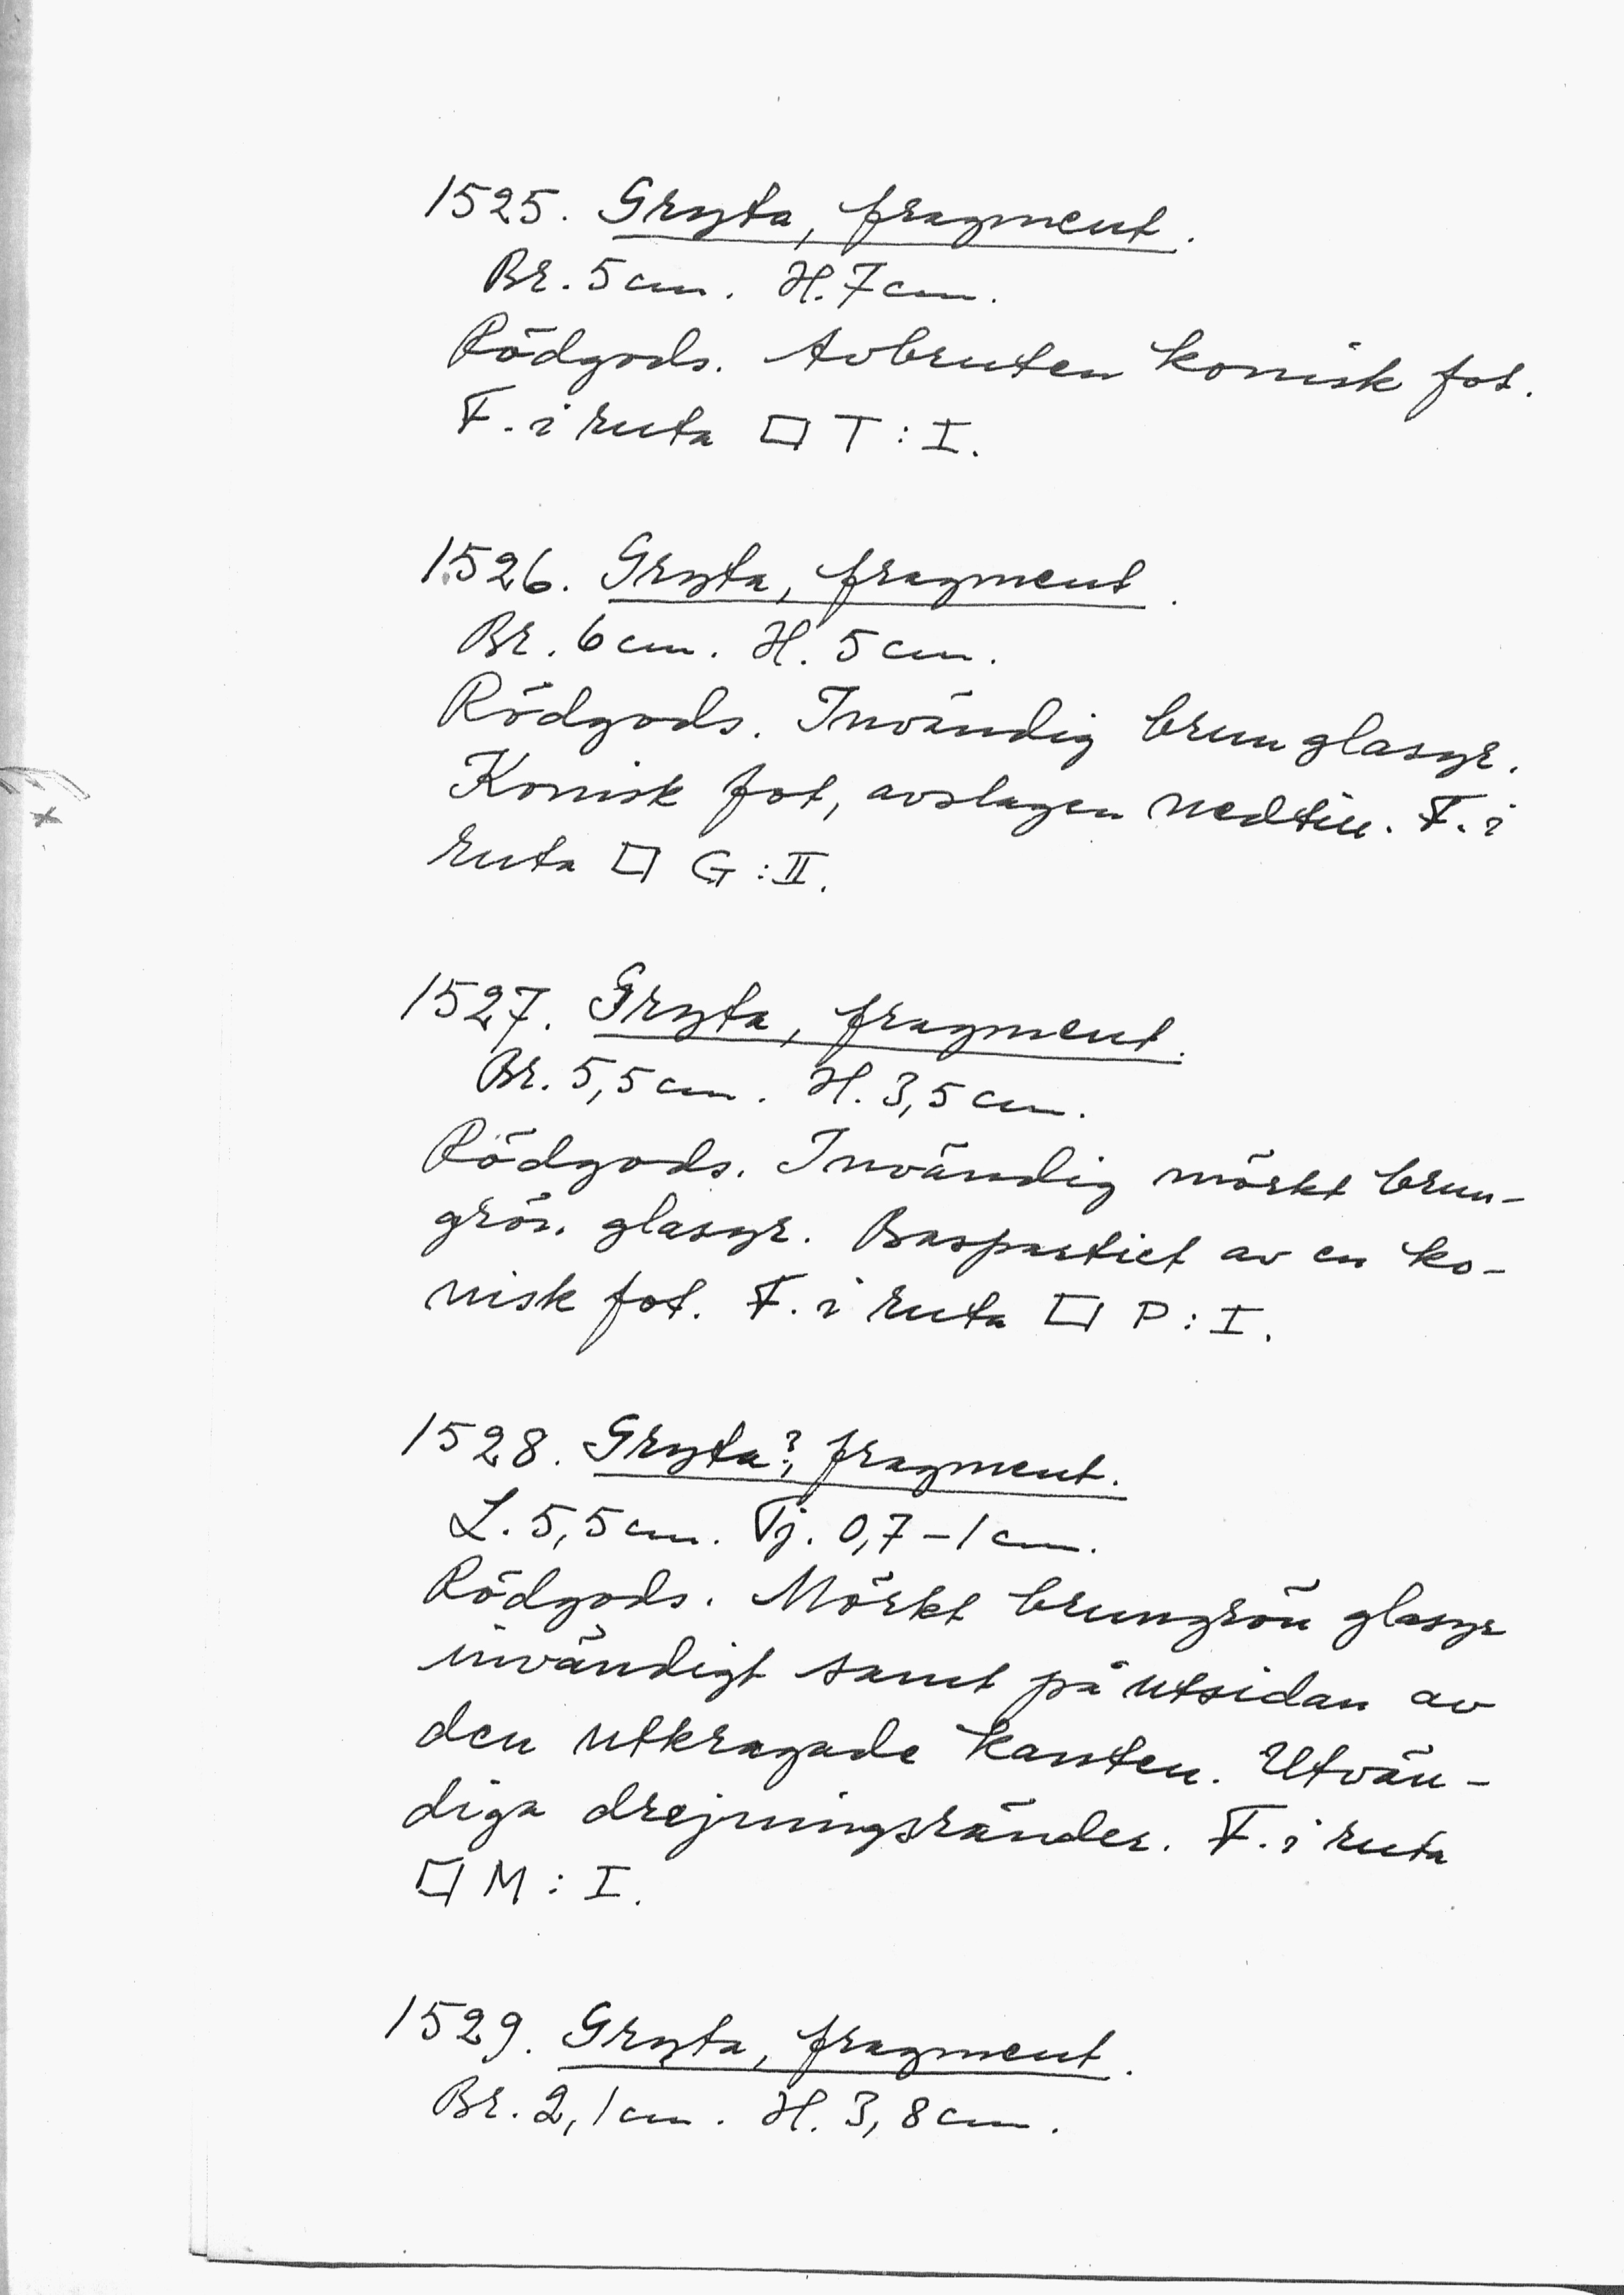 1525. Gryta, fragment.
Br. 5 cm. H. 7 cm.
Rödgods. Avbruten konisk fot.
F. i ruta □ T : I.
1526. Gryta, fragment.
Br. 6 cm. H. 5 cm.
Rödgods. Invändig brun glasyr.
Konisk fot, avslagen nedtill. F. i
ruta □ G : II.
1527. Gryta, fragment.
Br. 5,5 cm. H. 3,5 cm.
Rödgods. Invändig mörkt brun-
grön glasyr. Baspartiet av en ko-
nisk fot. F. i ruta □ P : I.
1528. Gryta?, fragment.
L. 5,5 cm. Tj. 0,7 – 1 cm.
Rödgods. Mörkt brungrön glasyr
invändigt samt på utsidan av
den utkragade kanten. Utvän-
diga drejningsränder. F. i ruta
□ M : I.
1529. Gryta, fragment.
Br. 2,1 cm. H. 3,8 cm.